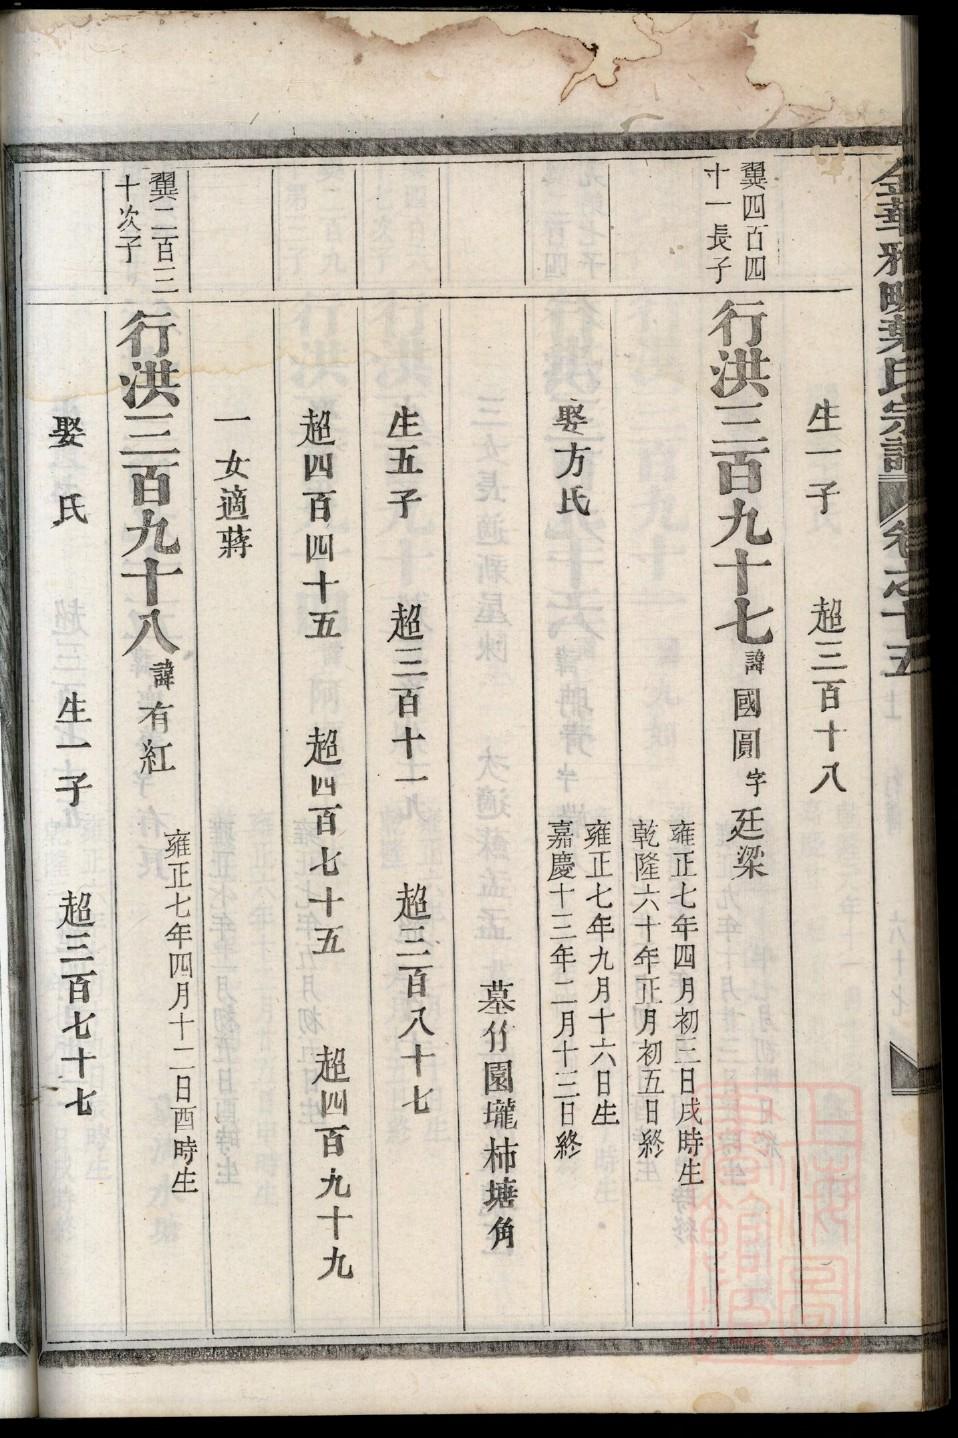 金華雅畈葉氏宗譜 卷之十五
生一子 超三百十八
翼四百四
十一長子
行洪三百九十七 諱國圓 字廷梁
雍正七年四月初三日戌時生
乾隆六十年正月初五日終
娶方氏
雍正七年九月十六日生
嘉慶十三年二月十三日終
墓竹園壠柿塘角
生五子 超三百十一 超三百八十七
超四百四十五 超四百七十五 超四百九十九
一女適蔣
翼二百三
十次子
行洪三百九十八 諱有紅
雍正七年四月十二日酉時生
娶 氏 生一子 超三百七十七